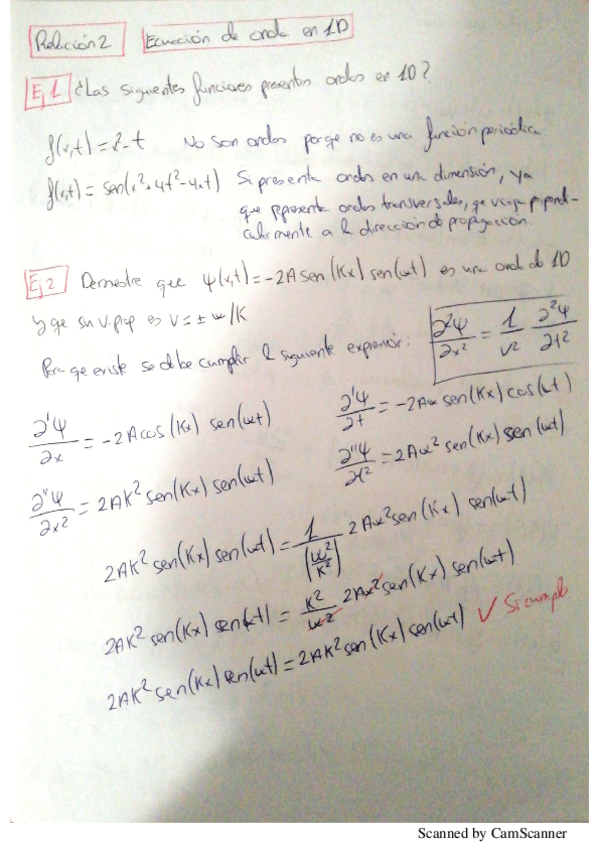 Relación 2 Ecuación de onda en 1D
Ej 1 ¿Las siguientes funciones presentan ondas en 1D?
f(x,t) = x²-t No son ondas porqe no es una función periódica
f(x,t) = sen(x²+4t²-4xt) Si presenta ondas en una dimensión, ya
que representa ondas transversales, qe viaja perpendi-
cularmente a la dirección de propagación.
Ej 2 Demestre que ψ(x,t) = -2A sen(Kx) sen(ωt) es una onda de 1D
y qe su v. prop es v = ± ω/K
Para qe existe se debe cumplir la siguiente expresión: ∂²ψ/∂x² = 1/v² ∂²ψ/∂t²
∂'ψ/∂x = -2A cos(Kx) sen(ωt) ∂'ψ/∂t = -2Aω sen(Kx) cos(ωt)
∂''ψ/∂x² = 2AK² sen(Kx) sen(ωt) ∂''ψ/∂t² = 2Aω² sen(Kx) sen(ωt)
2AK² sen(Kx) sen(ωt) = 1/(ω²/K²) 2Aω² sen(Kx) sen(ωt)
2AK² sen(Kx) sen(ωt) = K²/ω² 2Aω² sen(Kx) sen(ωt)
2AK² sen(Kx) sen(ωt) = 2AK² sen(Kx) sen(ωt) ✓ Si cumple
Scanned by CamScanner